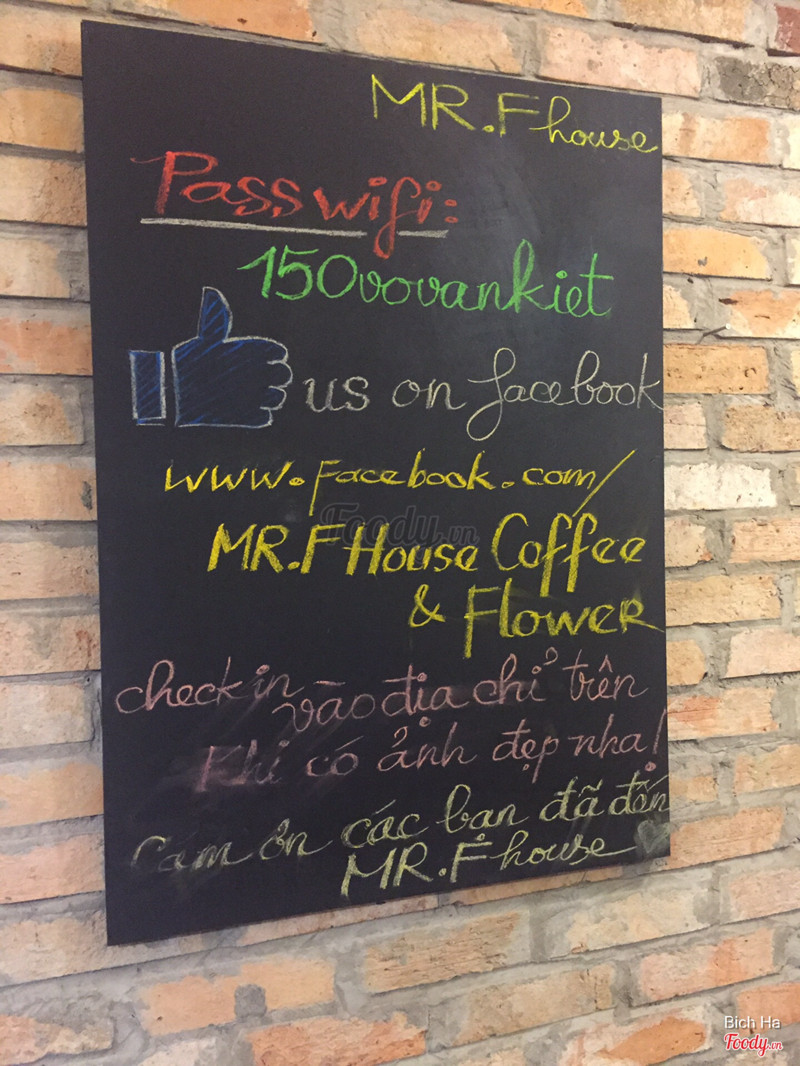 MR.F house
Pass wifi:
150vovankiet
us on facebook
www.facebook.com/
MR.F House Coffee
& Flower
check in vào địa chỉ trên
Khi có ảnh đẹp nha!
Cám ơn các bạn đã đến
MR.F house
Foody.vn
Bich Ha
Foody.vn